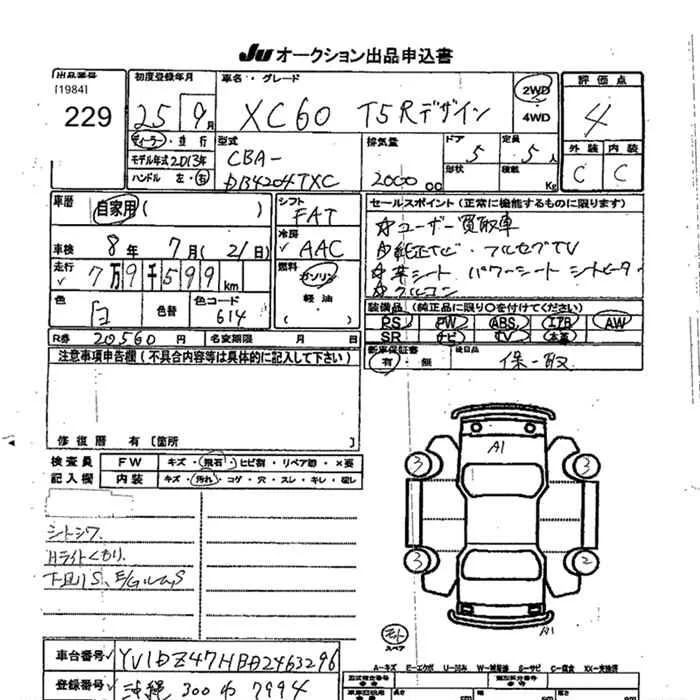 JU オークション出品申込書
出品番号 初度登録年月 車名・グレード 2WD ・ 4WD 評価点
[1984]
229 25 9月 XC60 T5 Rデザイン 4
ディーラー・並行 型式 排気量 ドア 定員 外装 内装
モデル年式2013年 CBA- 2000 cc 5 5人 C C
ハンドル 左・右 DB4204TXC 形状 積載 Kg
車歴 自家用( ) シフト FAT セールスポイント(正常に機能するものに限ります)
☆ユーザー買取車
車検 8年 7月(21日) 冷房 AAC
☆純正ナビ・フルセグTV
走行 7万9千599km 燃料 ガソリン・軽油
☆革シート パワーシート シートヒーター
☆アルコン
色 白 色替 色コード 614
装備品(純正品に限り○を付けてください)
PS PW ABS エアB AW
SR ナビ TV 本革
R券 20560円 名変期限 月 日
新車保証書 有・無 後日品 保・取
注意事項申告欄(不具合内容等は具体的に記入して下さい)
修復歴 有〔箇所 〕
検査員 FW キズ・飛石・ヒビ割・リペア跡・×要
記入欄 内装 キズ・汚れ・コゲ・穴・スレ・キレ・
シートシワ
Hライトくもり
下廻りS、E/GルームS
A1
3 3
3 2
A1
スペア
A-キズ E-エクボ U-凹み S-サビ C-腐食 XX-交換済
車台番号 YV1DZ47HBD2463296
登録番号 沖縄 300 7994